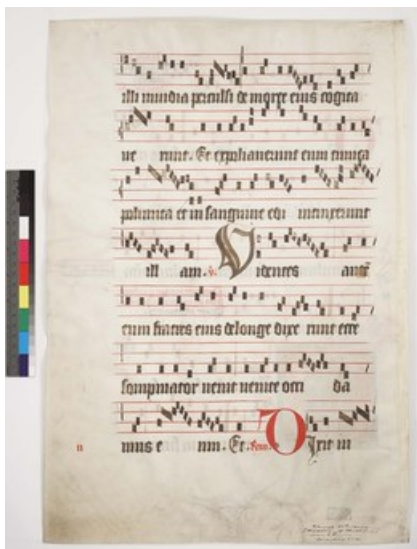 illi inuidia perculsi de morte eius cogita
ue runt. Et expoliauerunt eum tunica
polimita et in sanguine edi intinxerunt
ill am. ℣. Videntes aute
eum fratres eius de longe dixe runt ecce
sompniator uenit uenite occi da
mus e um. Et Dixit iu